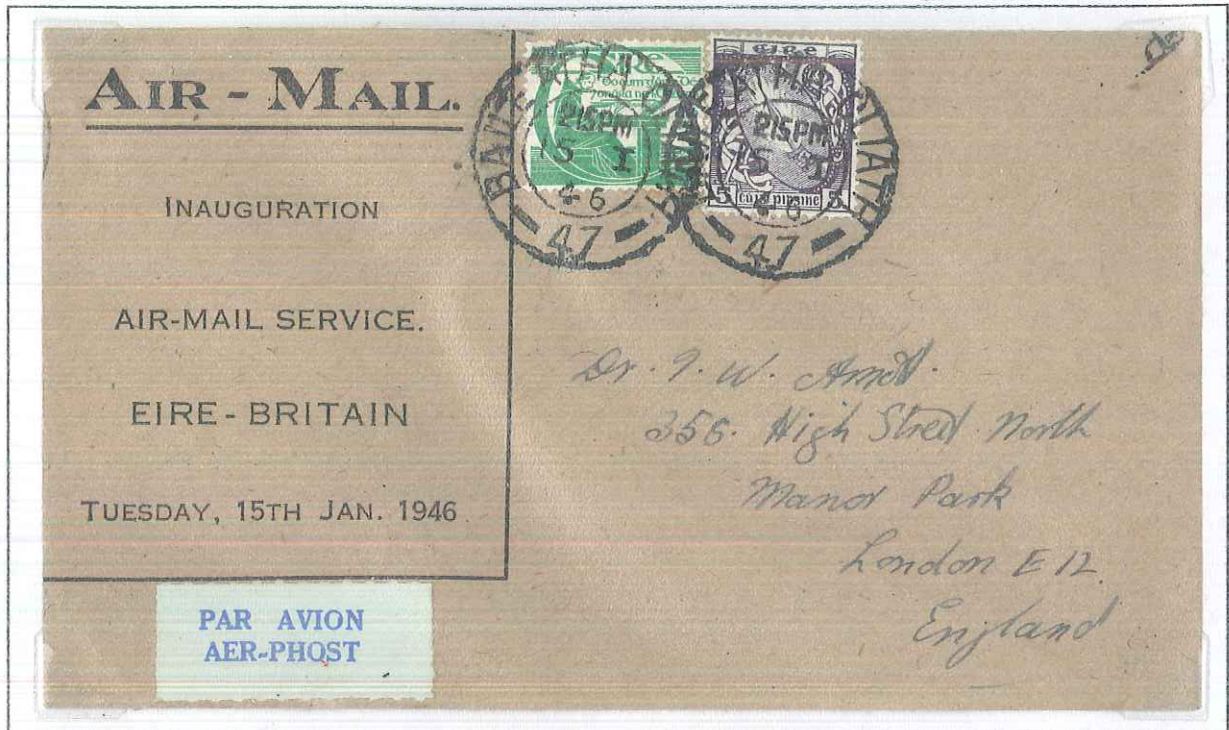 AIR - MAIL.
INAUGURATION
AIR-MAIL SERVICE.
EIRE - BRITAIN
TUESDAY, 15TH JAN. 1946
PAR AVION
AER-PHOST
éire
5 5
215PM
15 I
46
47
BAILE ÁTHA CLIATH
215PM
15 I
46
47
Dr. I. W.
356. High Street North
Manor Park
London E 12.
England